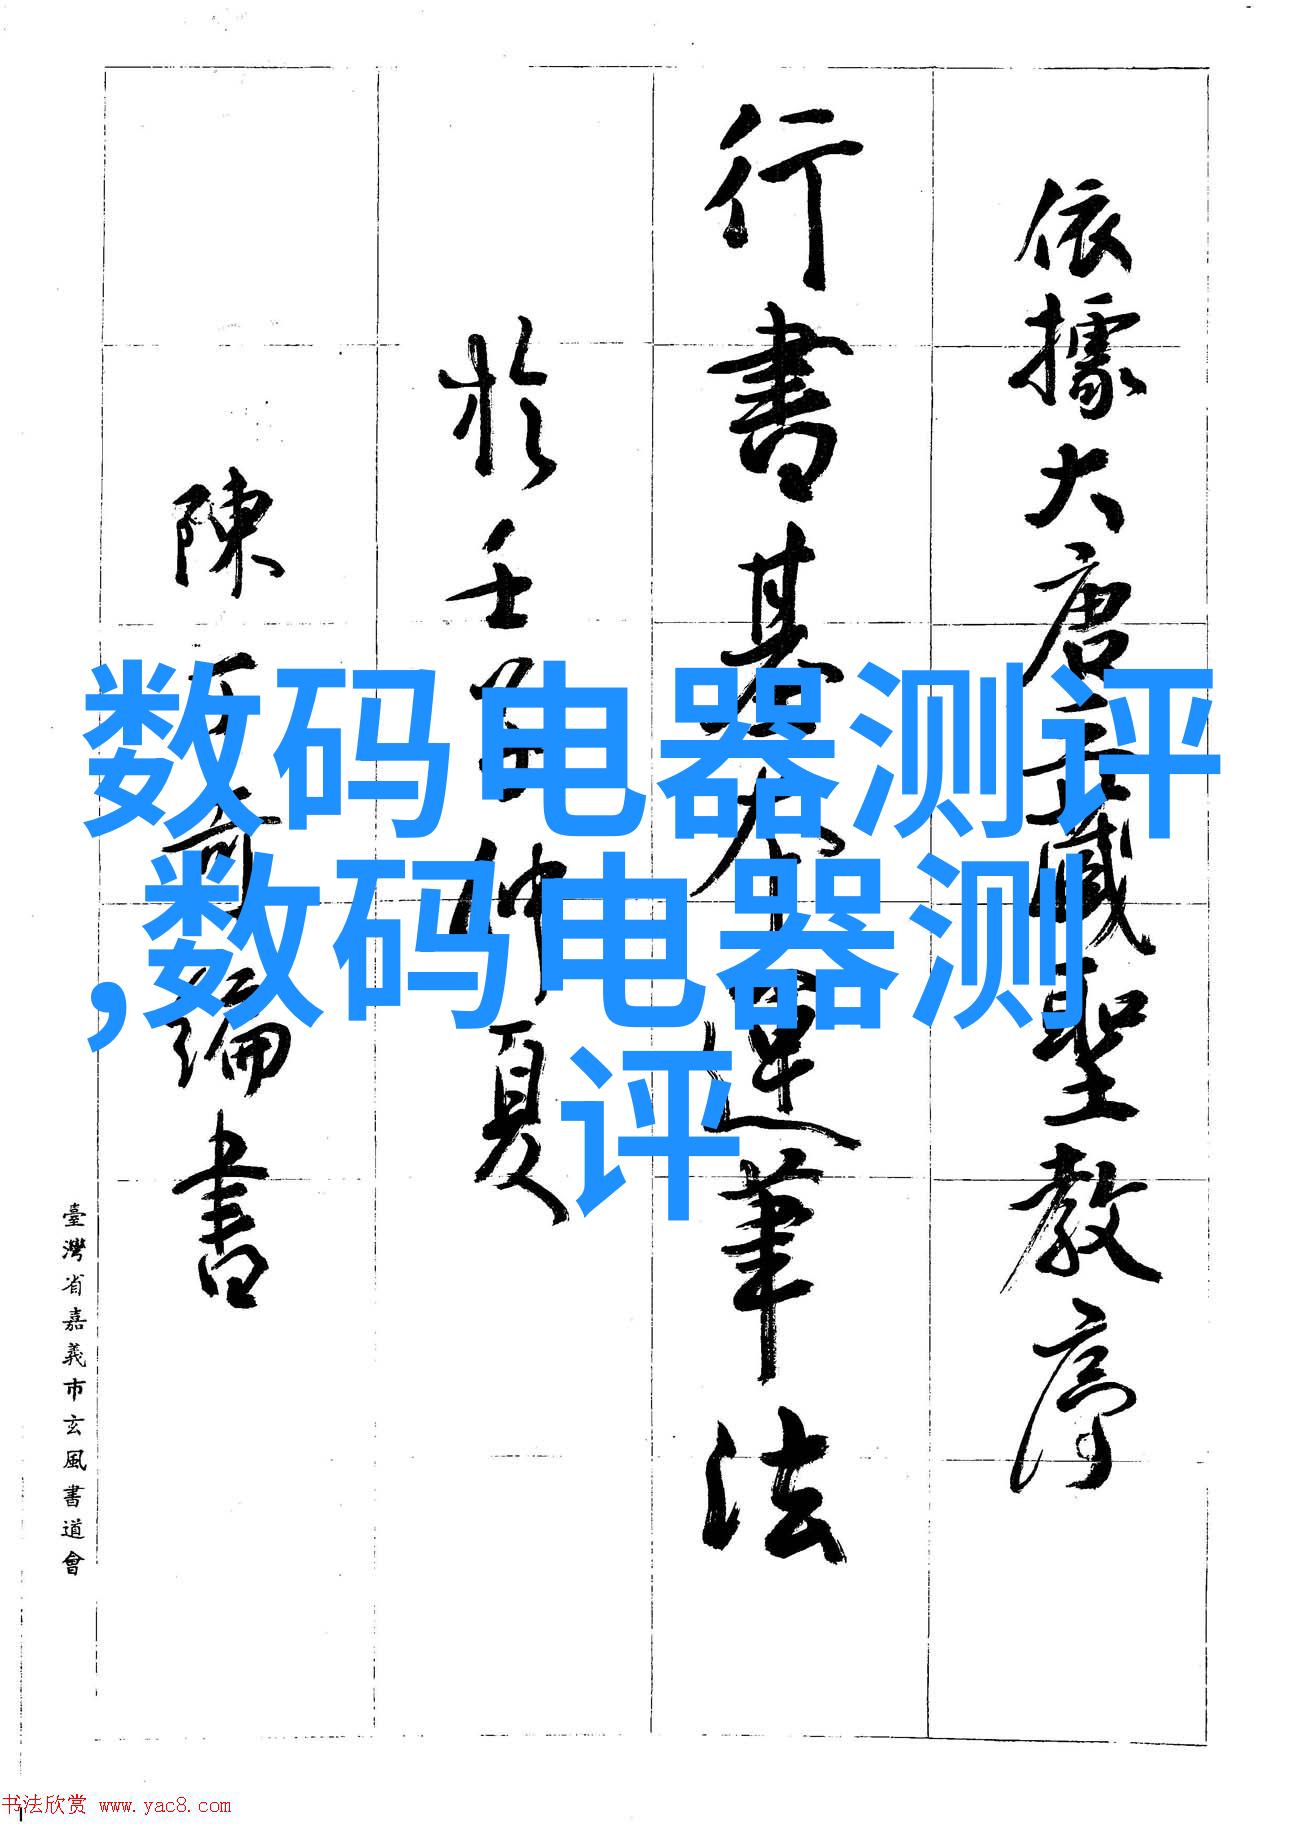 依據大唐三藏聖教序
行書基本運筆法
於壬子仲夏
陳丁奇編書
臺灣省嘉義市玄風書道會
数码电器测评
,数码电器测
评
书法欣赏 www.yac8.com